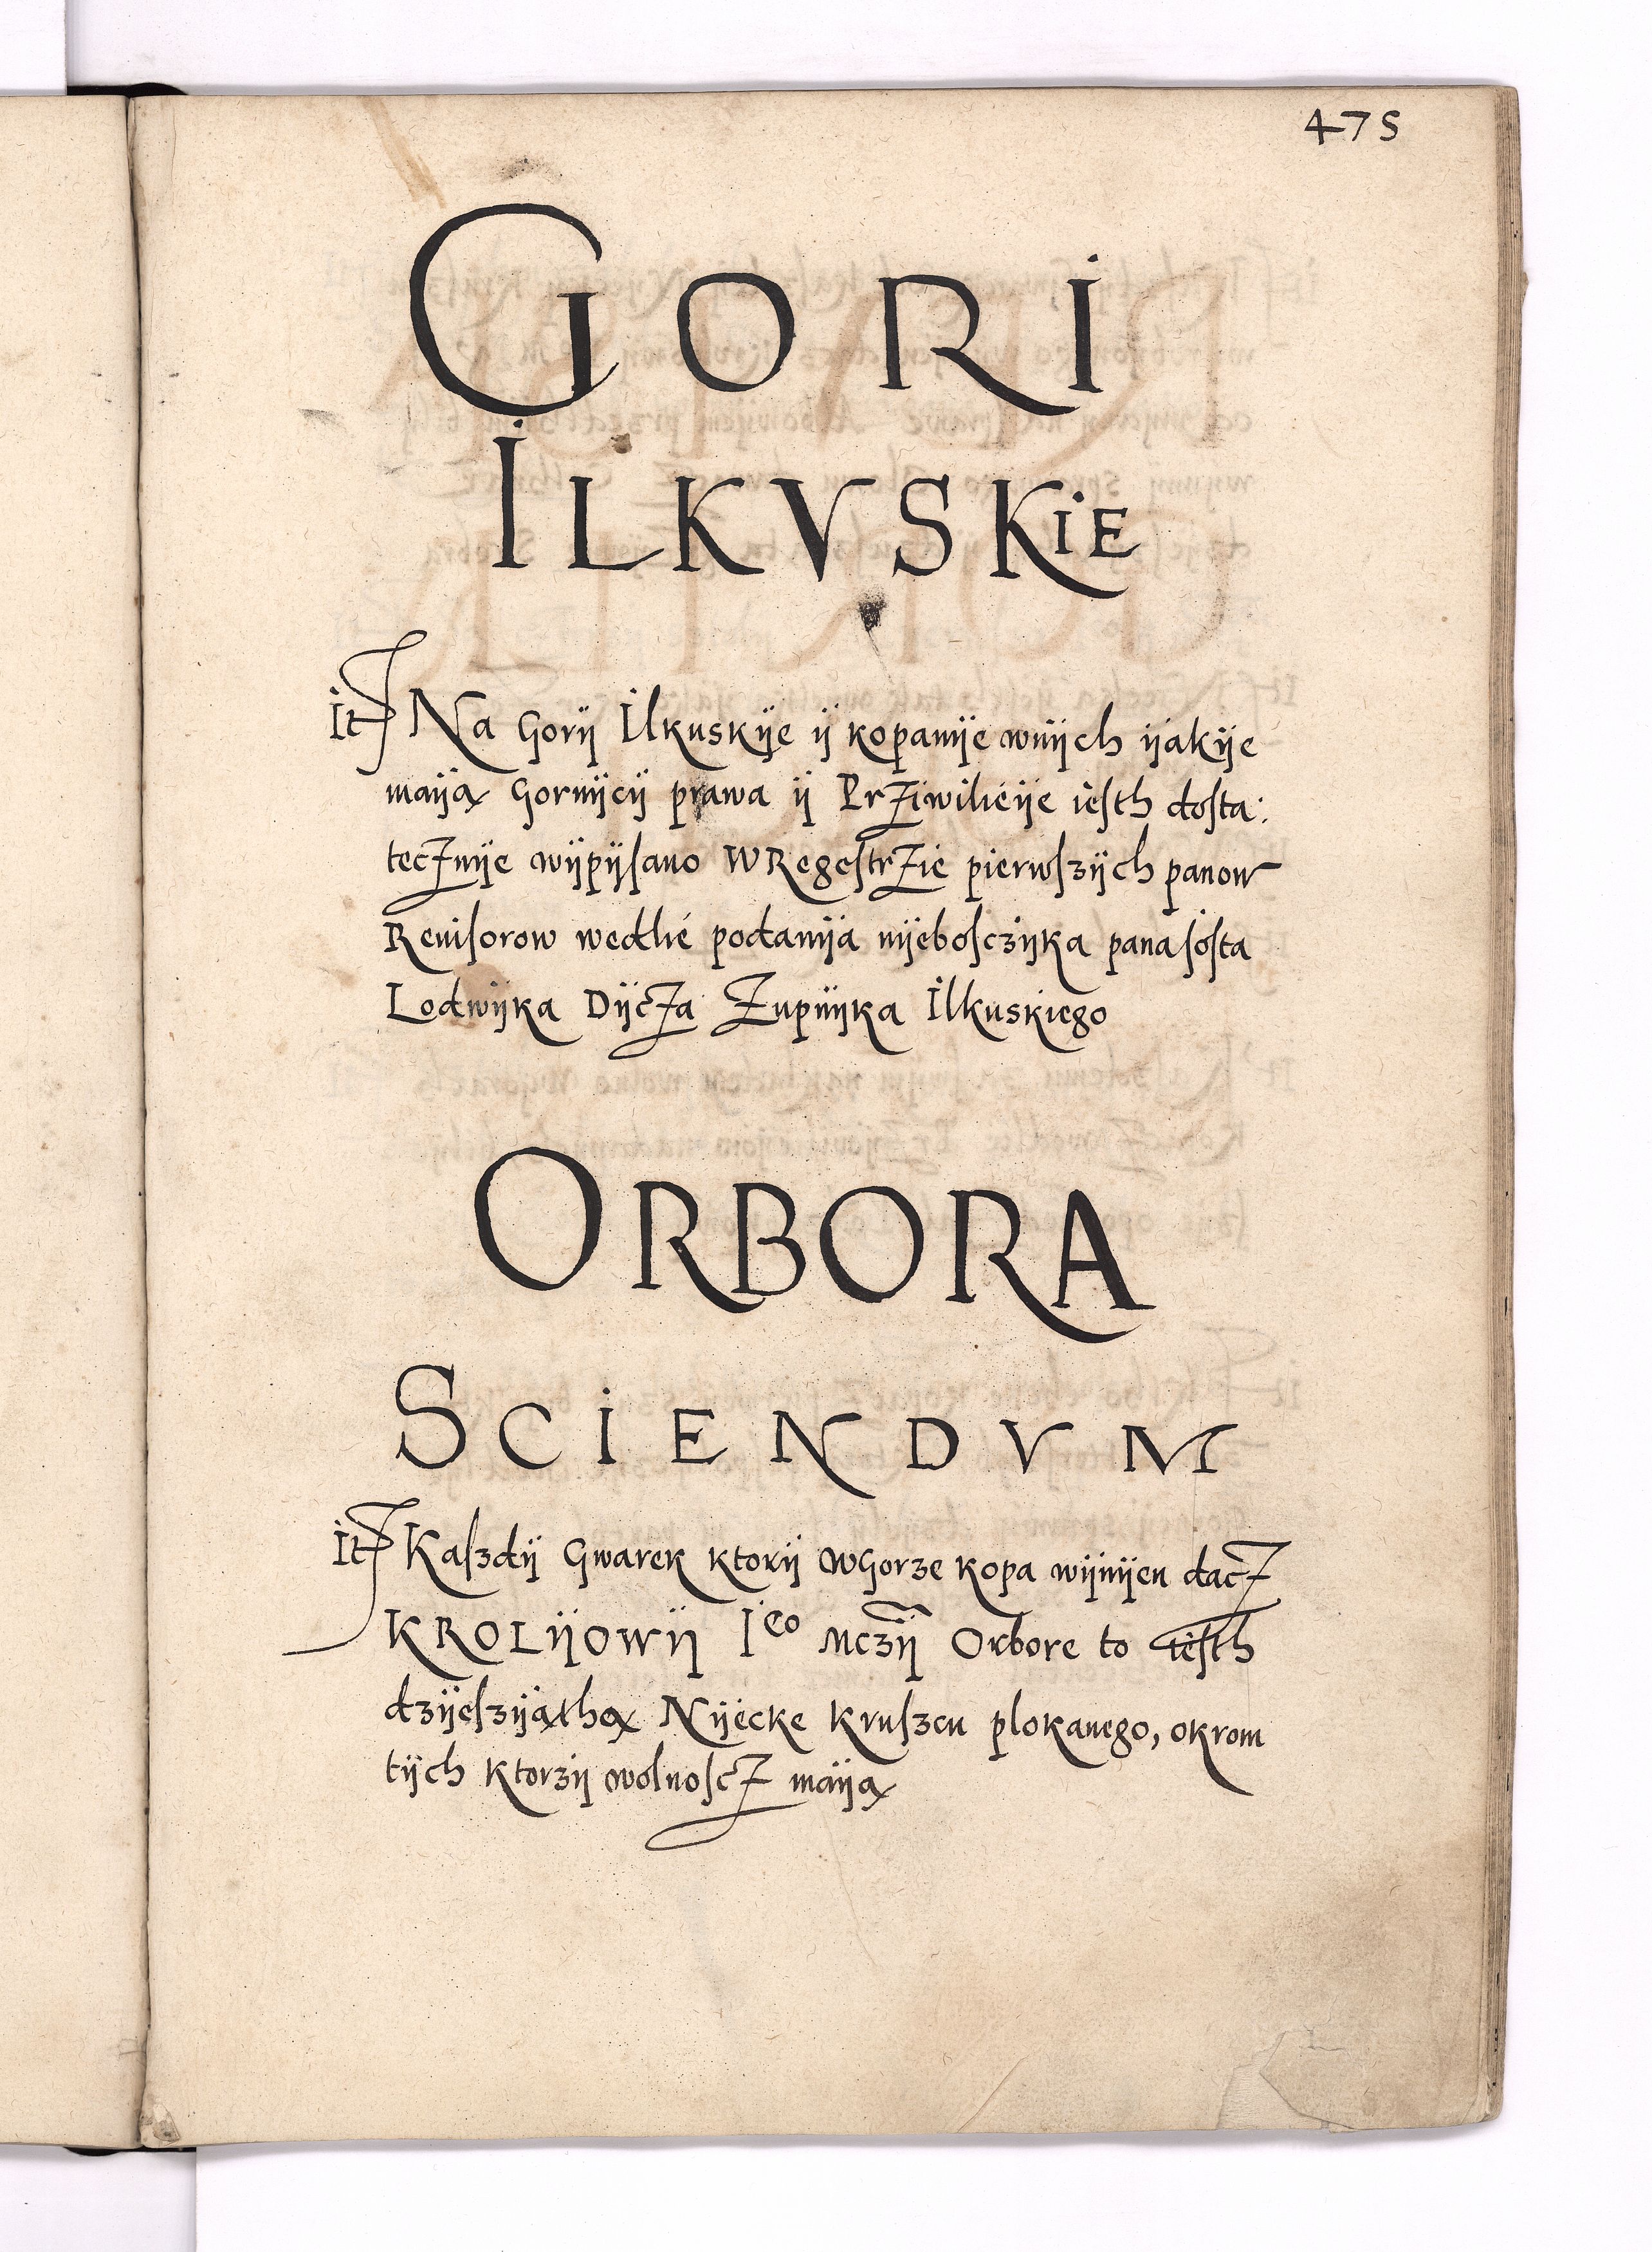 475
GORI
ILKVSKiE
It Na Gorÿ Ilkuskÿe ÿ kopanÿe wnÿch ÿakÿe
maÿą Gornÿcÿ prawa ÿ Przÿwilieÿe iesth dosta:
tecznÿe wÿpÿsano WRegestrzie pierwszÿch panow
Reuisorow wedlie podanÿa nÿeboſczÿka pana ſosta
Lodwÿka Dÿcza Zupnÿka Ilkuskiego
ORBORA
SCIENDVM
It Kaſzdÿ Gwarek ktorÿ wGorze kopa wÿnÿen dacz
KROLÿOWÿ Ieo Mczÿ Orbore to iesth
dzÿeſzÿąthą Nÿecke Kruſzcu plokanego, okrom
tÿch ktorzÿ wolnoſcz maÿą